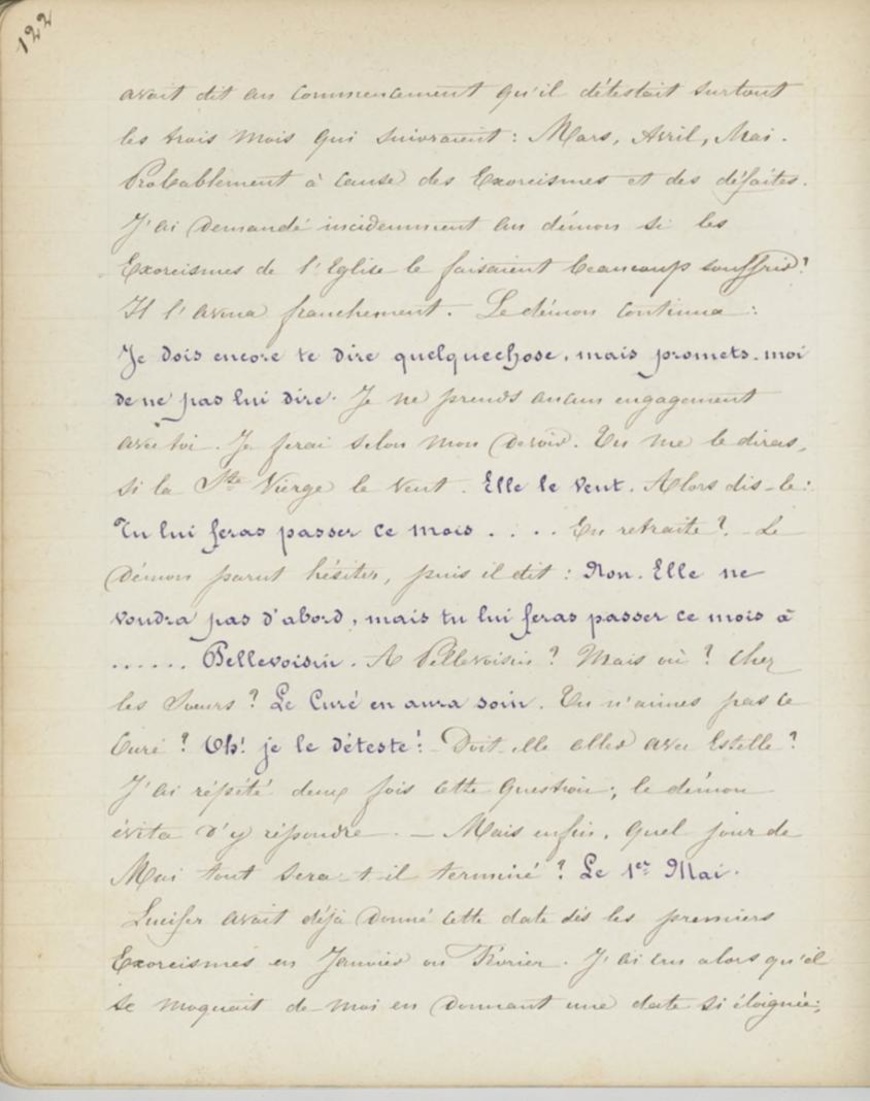 122
avait dit au commencement qu'il détestait surtout
les trois mois qui suivraient : Mars, Avril, Mai.
Probablement à cause des Exorcismes et des défaites.
J'ai demandé incidemment au démon si les
Exorcismes de l'Eglise le faisaient beaucoup souffrir ?
Il l'avoua franchement. Le démon continua :
Je dois encore te dire quelquechose, mais promets-moi
de ne pas lui dire. Je ne prends aucun engagement
avec toi. Je ferai selon mon devoir. Tu me le diras,
si la Ste Vierge le veut. Elle le veut. Alors dis-le :
Tu lui feras passer ce mois . . . . En retraite ? - Le
démon parut hésiter, puis il dit : Non. Elle ne
voudra pas d'abord, mais tu lui feras passer ce mois à
...... Pellevoisin. A Pellevoisin ? Mais où ? Chez
les Soeurs ? Le Curé en aura soin. Tu n'aimes pas ce
Curé ? Oh! je le déteste! - Doit-elle aller avec Estelle ?
J'ai répété deux fois cette question; le démon
évita d'y répondre. — Mais enfin, quel jour de
Mai tout sera-t-il terminé ? Le 1er Mai.
Lucifer avait déjà donné cette date dès les premiers
Exorcismes en Janvier ou Février. J'ai cru alors qu'il
se moquait de moi en donnant une date si éloignée;